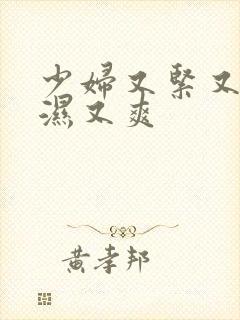 少婦又緊又
濕又爽
黄孝邦